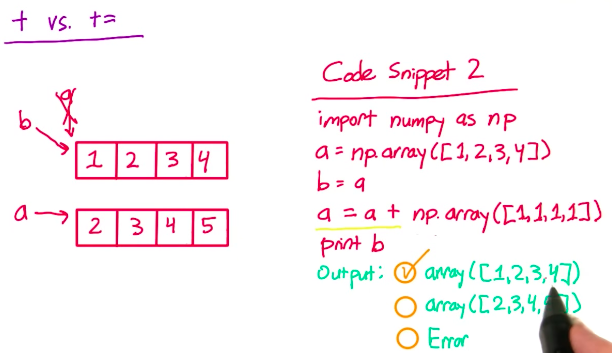 + vs. +=
a
b
1 2 3 4
a
2 3 4 5
Code Snippet 2
import numpy as np
a = np.array([1,2,3,4])
b = a
a = a + np.array([1,1,1,1])
print b
Output: array([1,2,3,4])
array([2,3,4, ])
Error